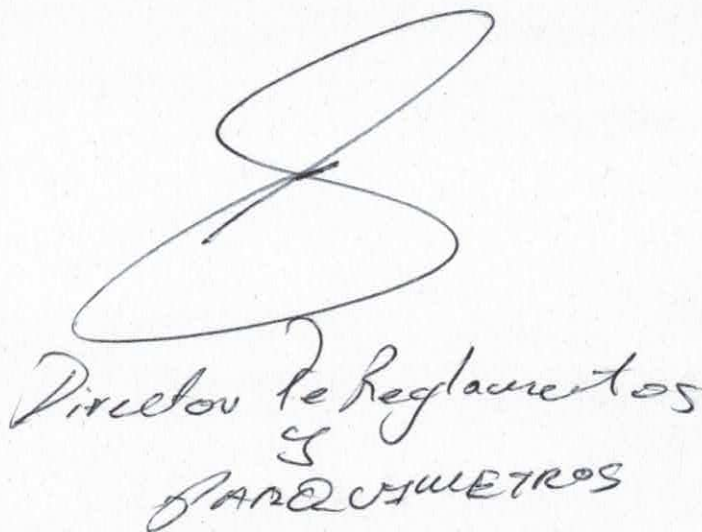 Director de Reglamentos
y
PARQUIMETROS